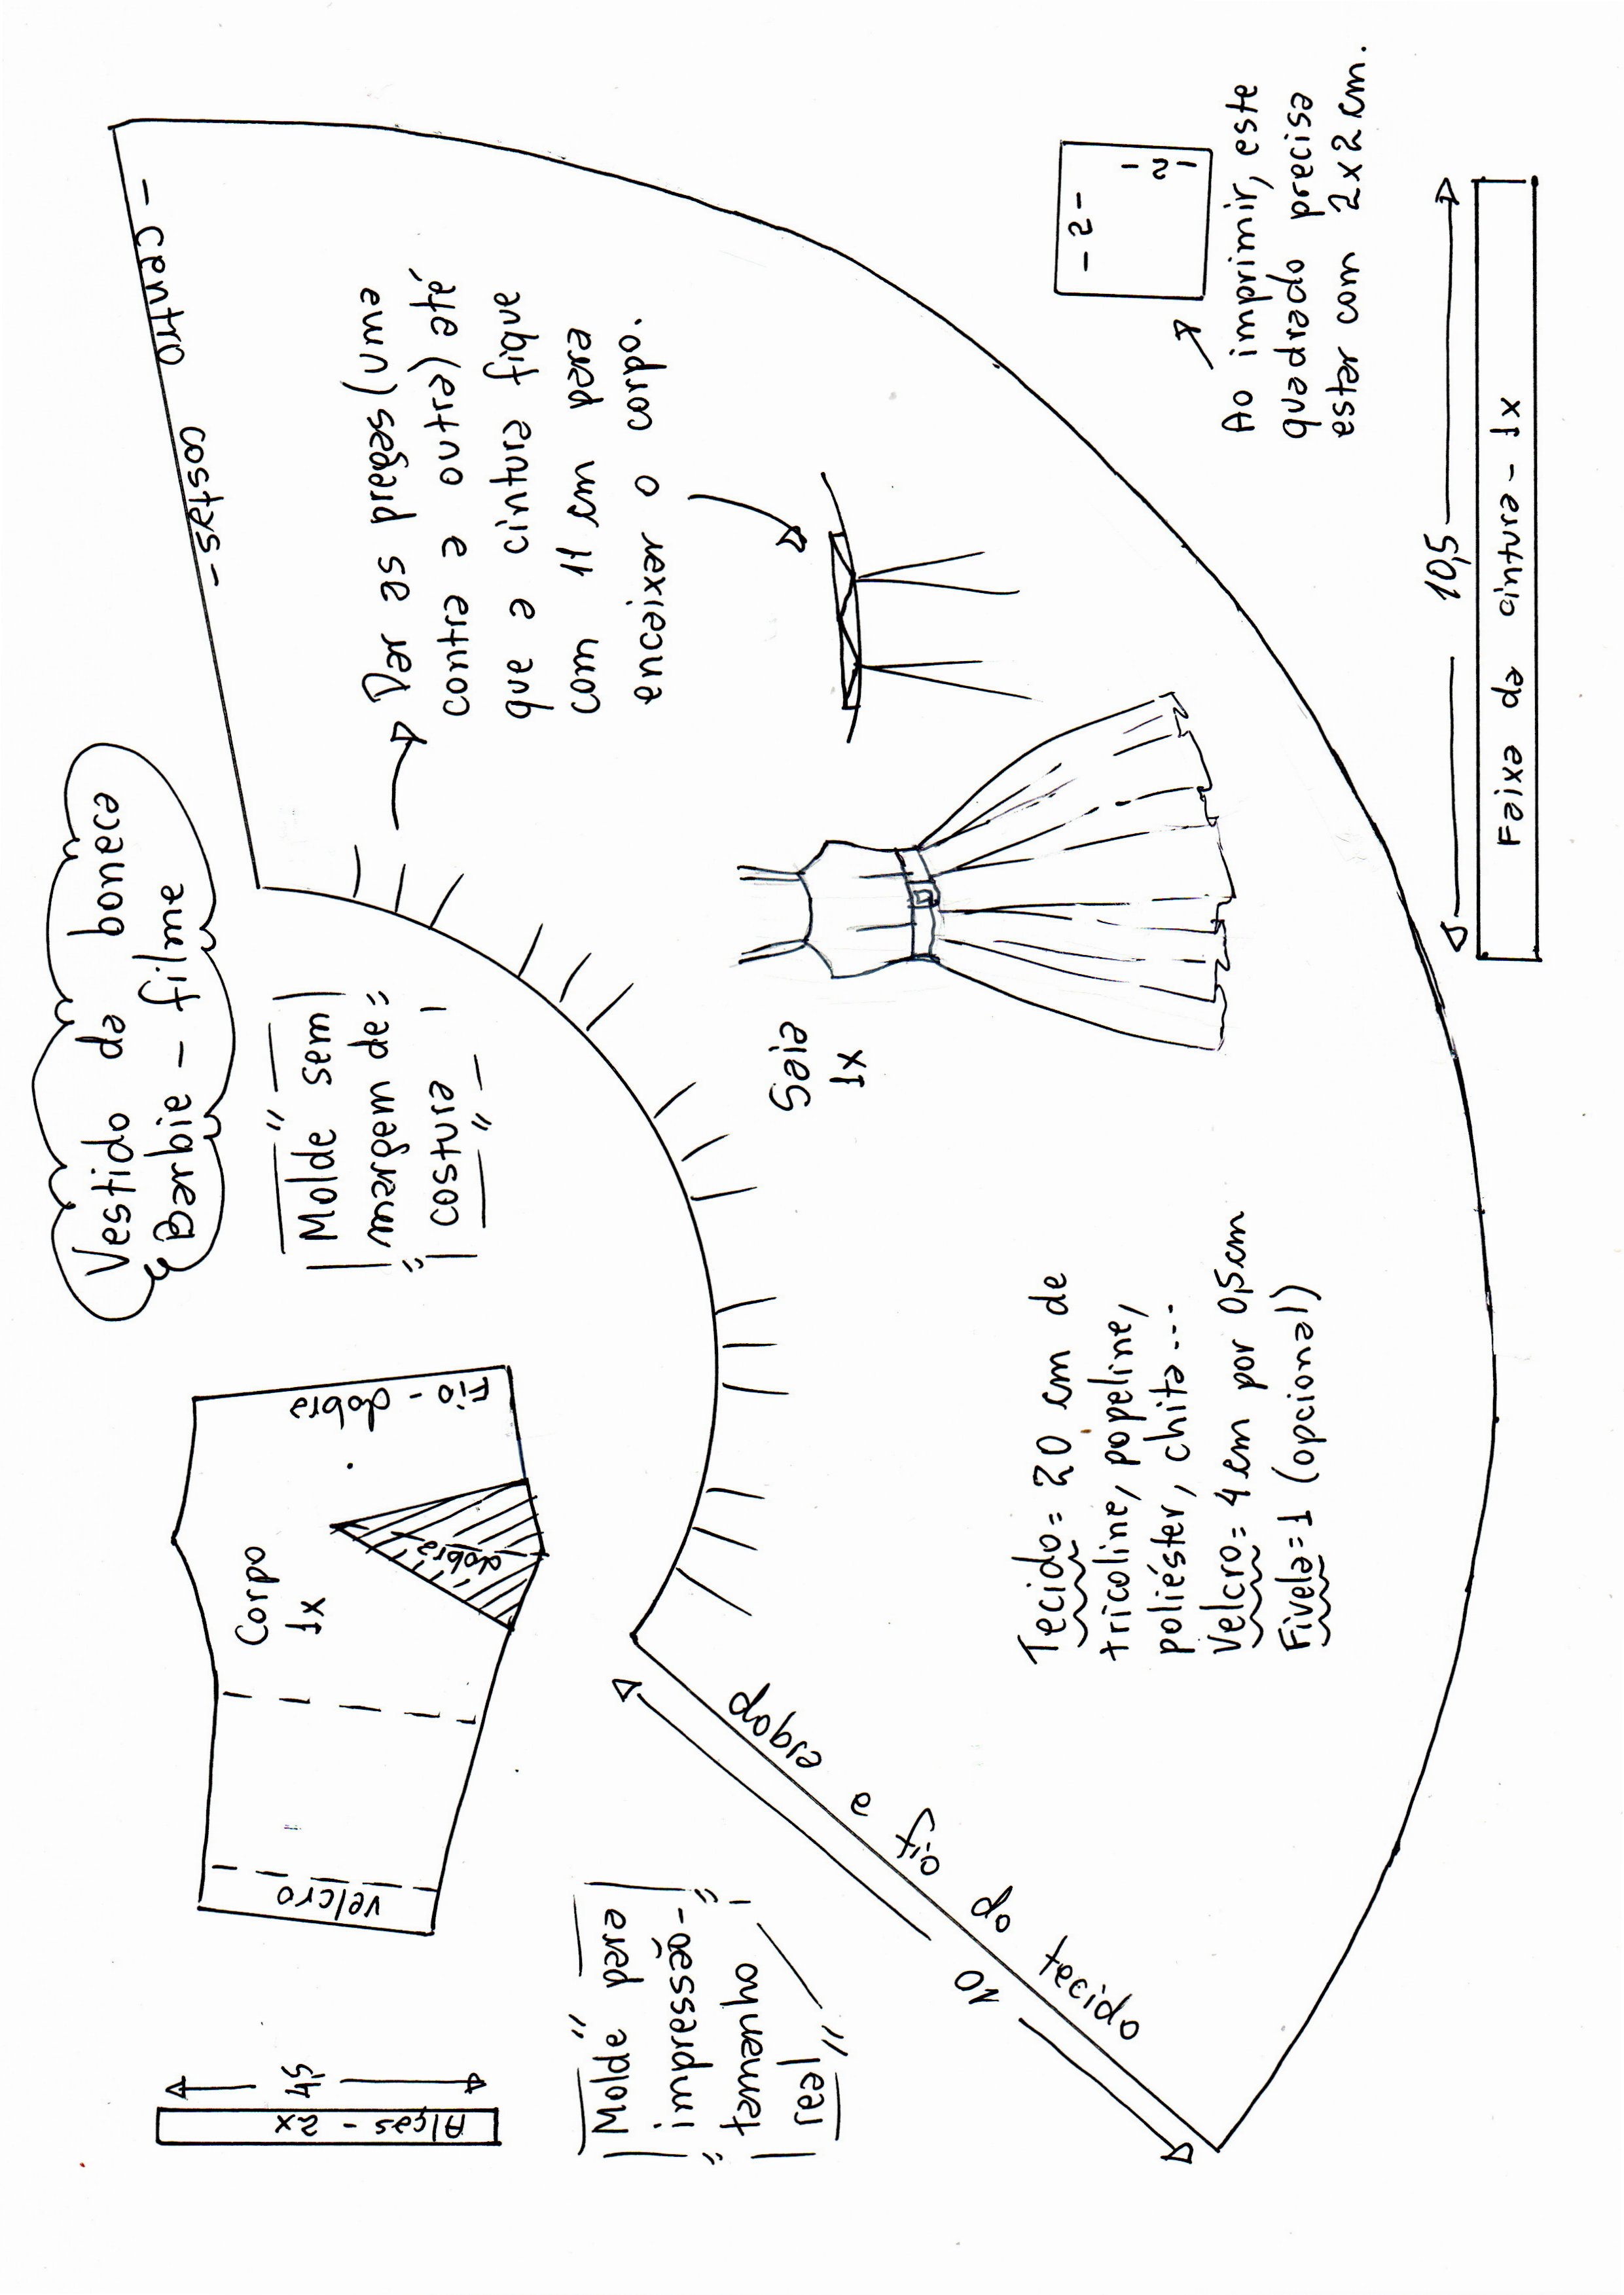 Vestido da boneca
Barbie - filme
"Molde sem
margem de
costura"
- centro costas -
Dar as pregas (uma
contra a outra) até
que a cintura fique
com 11 cm para
encaixar o corpo.
- 2 -
- 2 -
Ao imprimir, este
quadrado precisa
estar com 2x2cm.
10,5
Faixa da cintura - 1x
Saia
1x
Fio - dobra
dobra
Corpo
1x
velcro
4,5
Alças - 2x
"Molde para
impressão-
tamanho
real"
dobra e fio do tecido
10
Tecido= 20 cm de
tricoline, popeline,
poliéster, chita...
Velcro= 4 cm por 0,5cm
Fivela=1 (opcional)